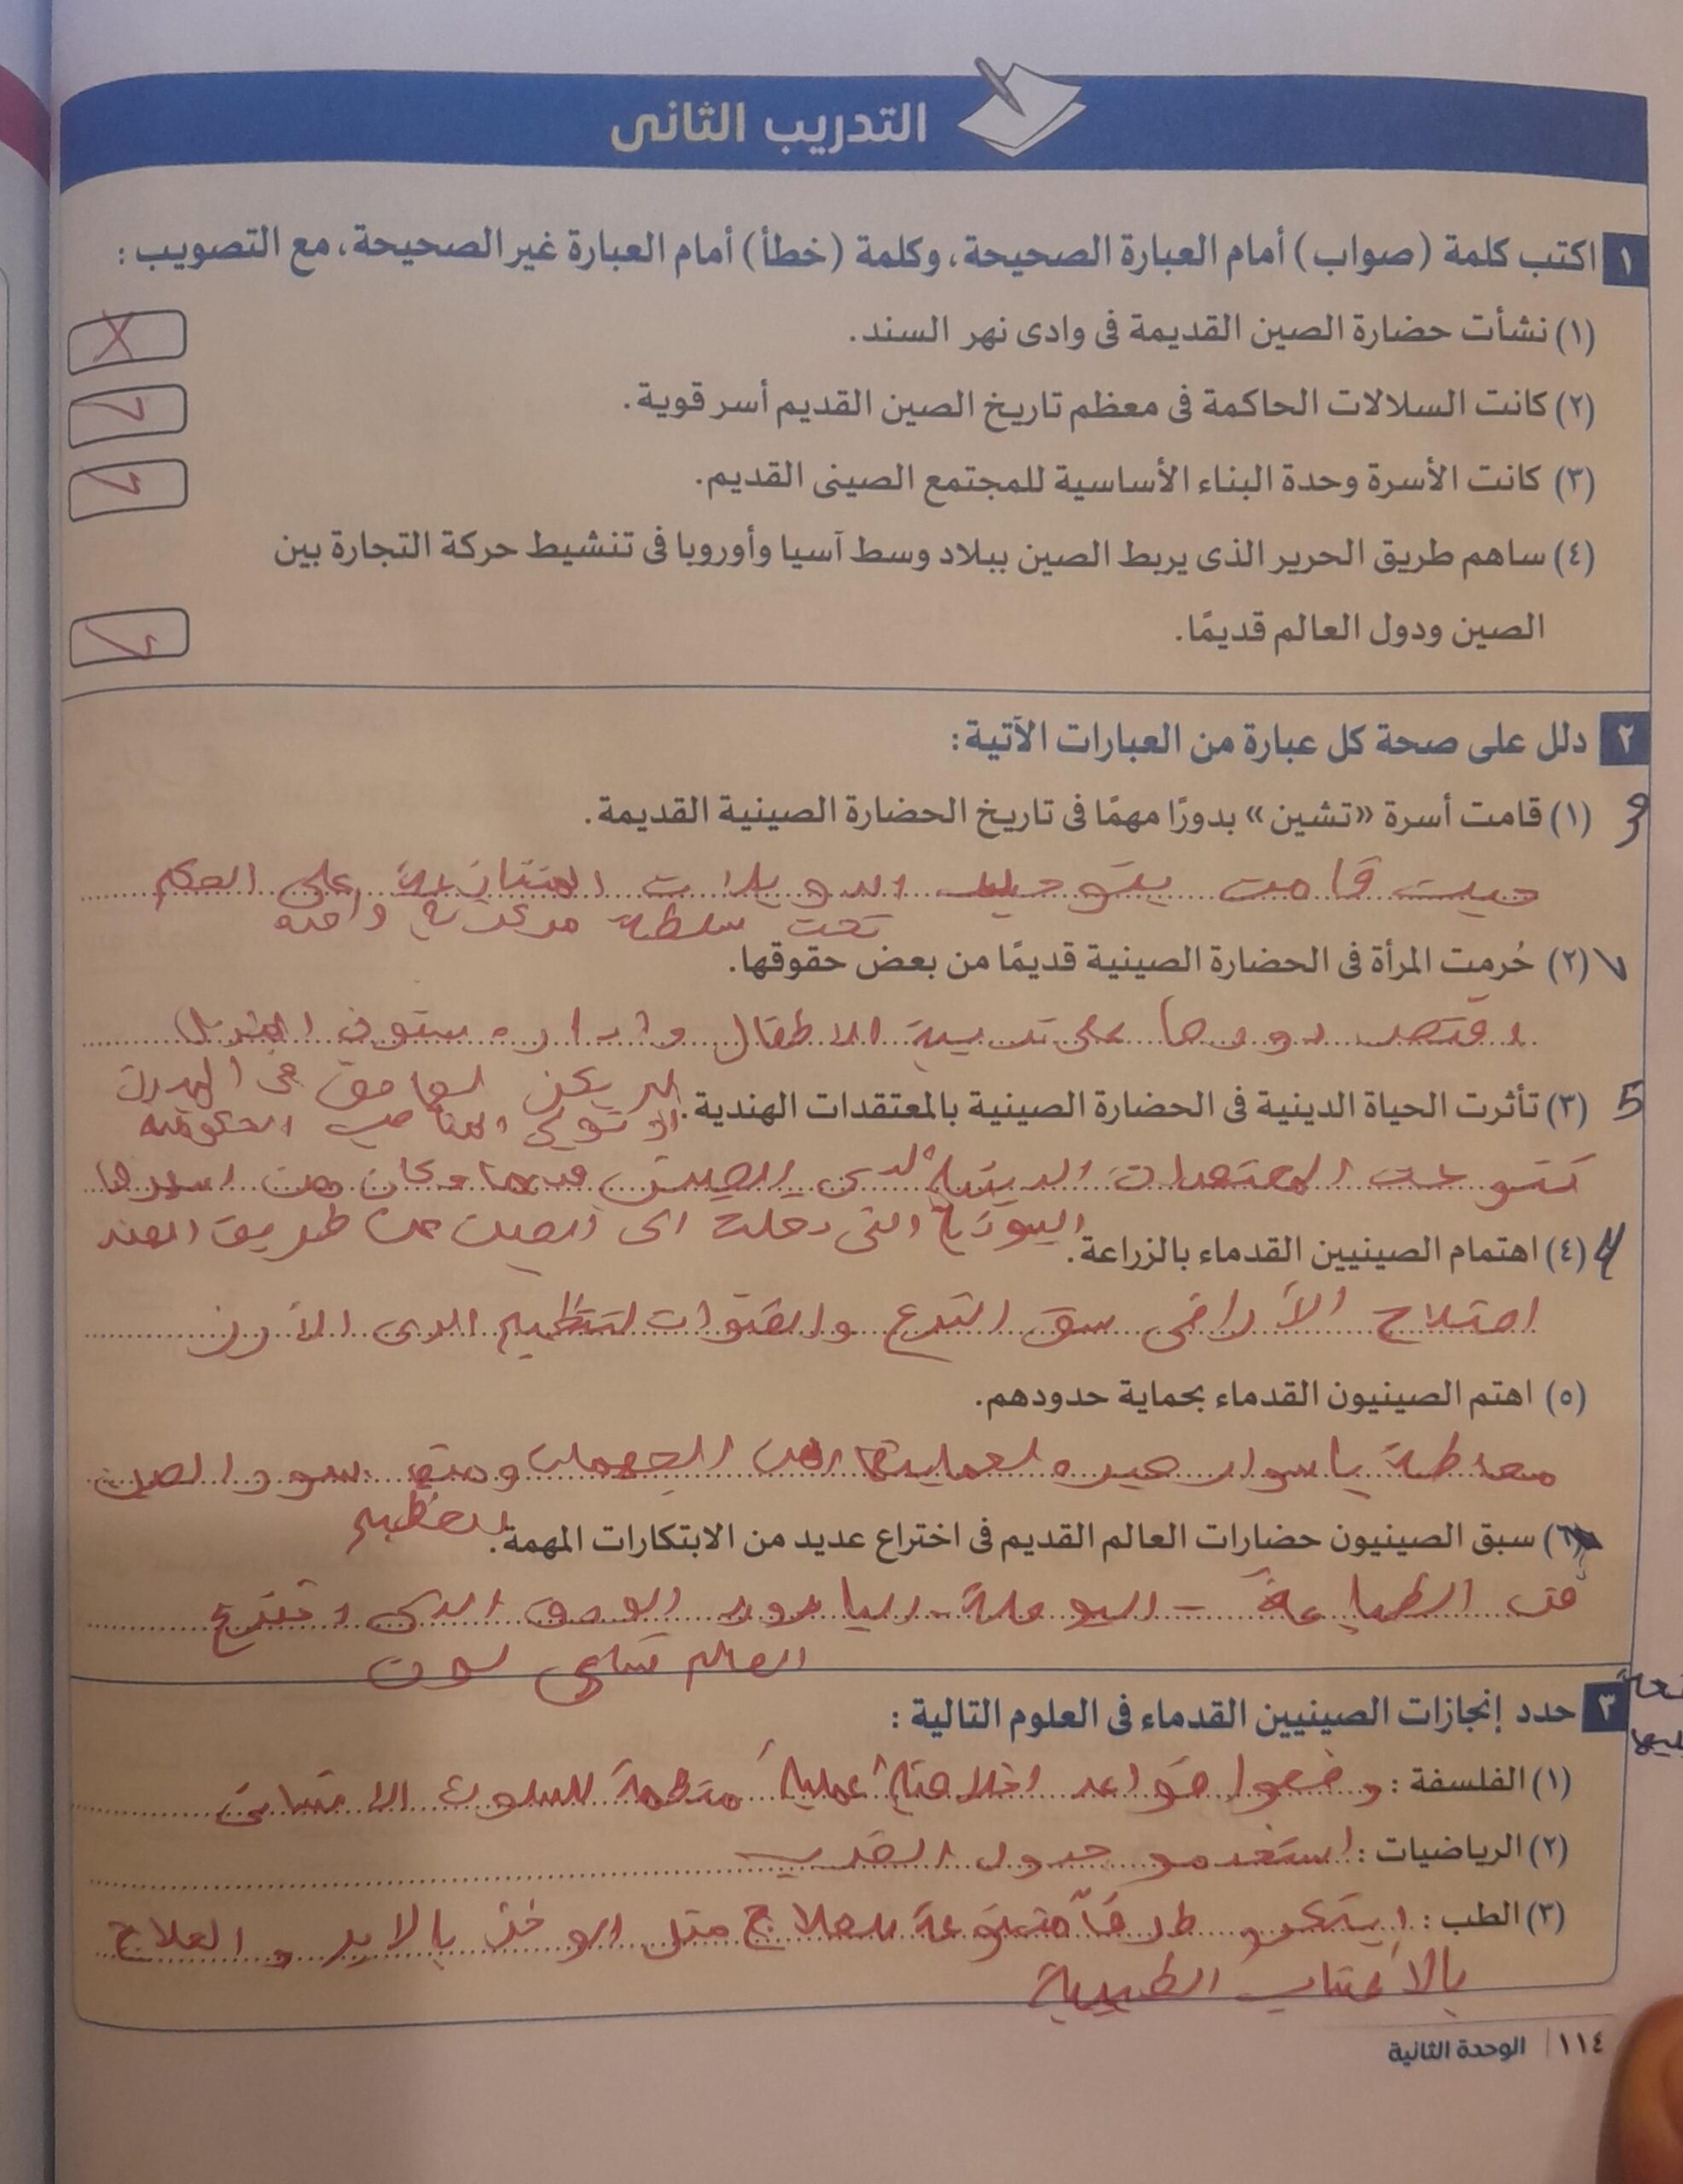 التدريب الثانى
١ اكتب كلمة (صواب) أمام العبارة الصحيحة، وكلمة (خطأ) أمام العبارة غير الصحيحة، مع التصويب :
(١) نشأت حضارة الصين القديمة فى وادى نهر السند. X
(٢) كانت السلالات الحاكمة فى معظم تاريخ الصين القديم أسر قوية.
(٣) كانت الأسرة وحدة البناء الأساسية للمجتمع الصينى القديم.
(٤) ساهم طريق الحرير الذى يربط الصين ببلاد وسط آسيا وأوروبا فى تنشيط حركة التجارة بين
الصين ودول العالم قديمًا.
٢ دلل على صحة كل عبارة من العبارات الآتية:
(١) قامت أسرة «تشين» بدورًا مهمًا فى تاريخ الحضارة الصينية القديمة.
حيث قامت بتوحيد الدويلات المتنازعة على الحكم
تحت سلطة مركزية واحده
(٢) حُرمت المرأة فى الحضارة الصينية قديمًا من بعض حقوقها.
اقتصر دورها على تربية الاطفال واداره شئون المنزل
لم يكن لها حق فى الميراث
او تولى المناصب الحكوميه
5 (٣) تأثرت الحياة الدينية فى الحضارة الصينية بالمعتقدات الهندية.
تنوعت المعتقدات الدينية لدى الصينين وكان من
البوذية التى دخلت الى الصين عن طريق الهند
(٤) اهتمام الصينيين القدماء بالزراعة.
اصلاح الأراضى شق الترع والقنوات لتنظيم الرى الأرز
(٥) اهتم الصينيون القدماء بحماية حدودهم.
باسوار لحمايتها من سور الصين
العظيم
(٦) سبق الصينيون حضارات العالم القديم فى اختراع عديد من الابتكارات المهمة.
الطباعة - البوصلة - البارود الورق الذى اخترع
العالم تساى لون
٣ حدد إنجازات الصينيين القدماء فى العلوم التالية :
(١) الفلسفة : وضعوا قواعد اخلاقية عملية منظمة للسلوك الانسانى
(٢) الرياضيات : استخدمو جدول الضرب
(٣) الطب : ابتكرو طرقاً متنوعة للعلاج مثل الوخز بالابر والعلاج
بالأعشاب الطبية
١١٤ | الوحدة الثانية